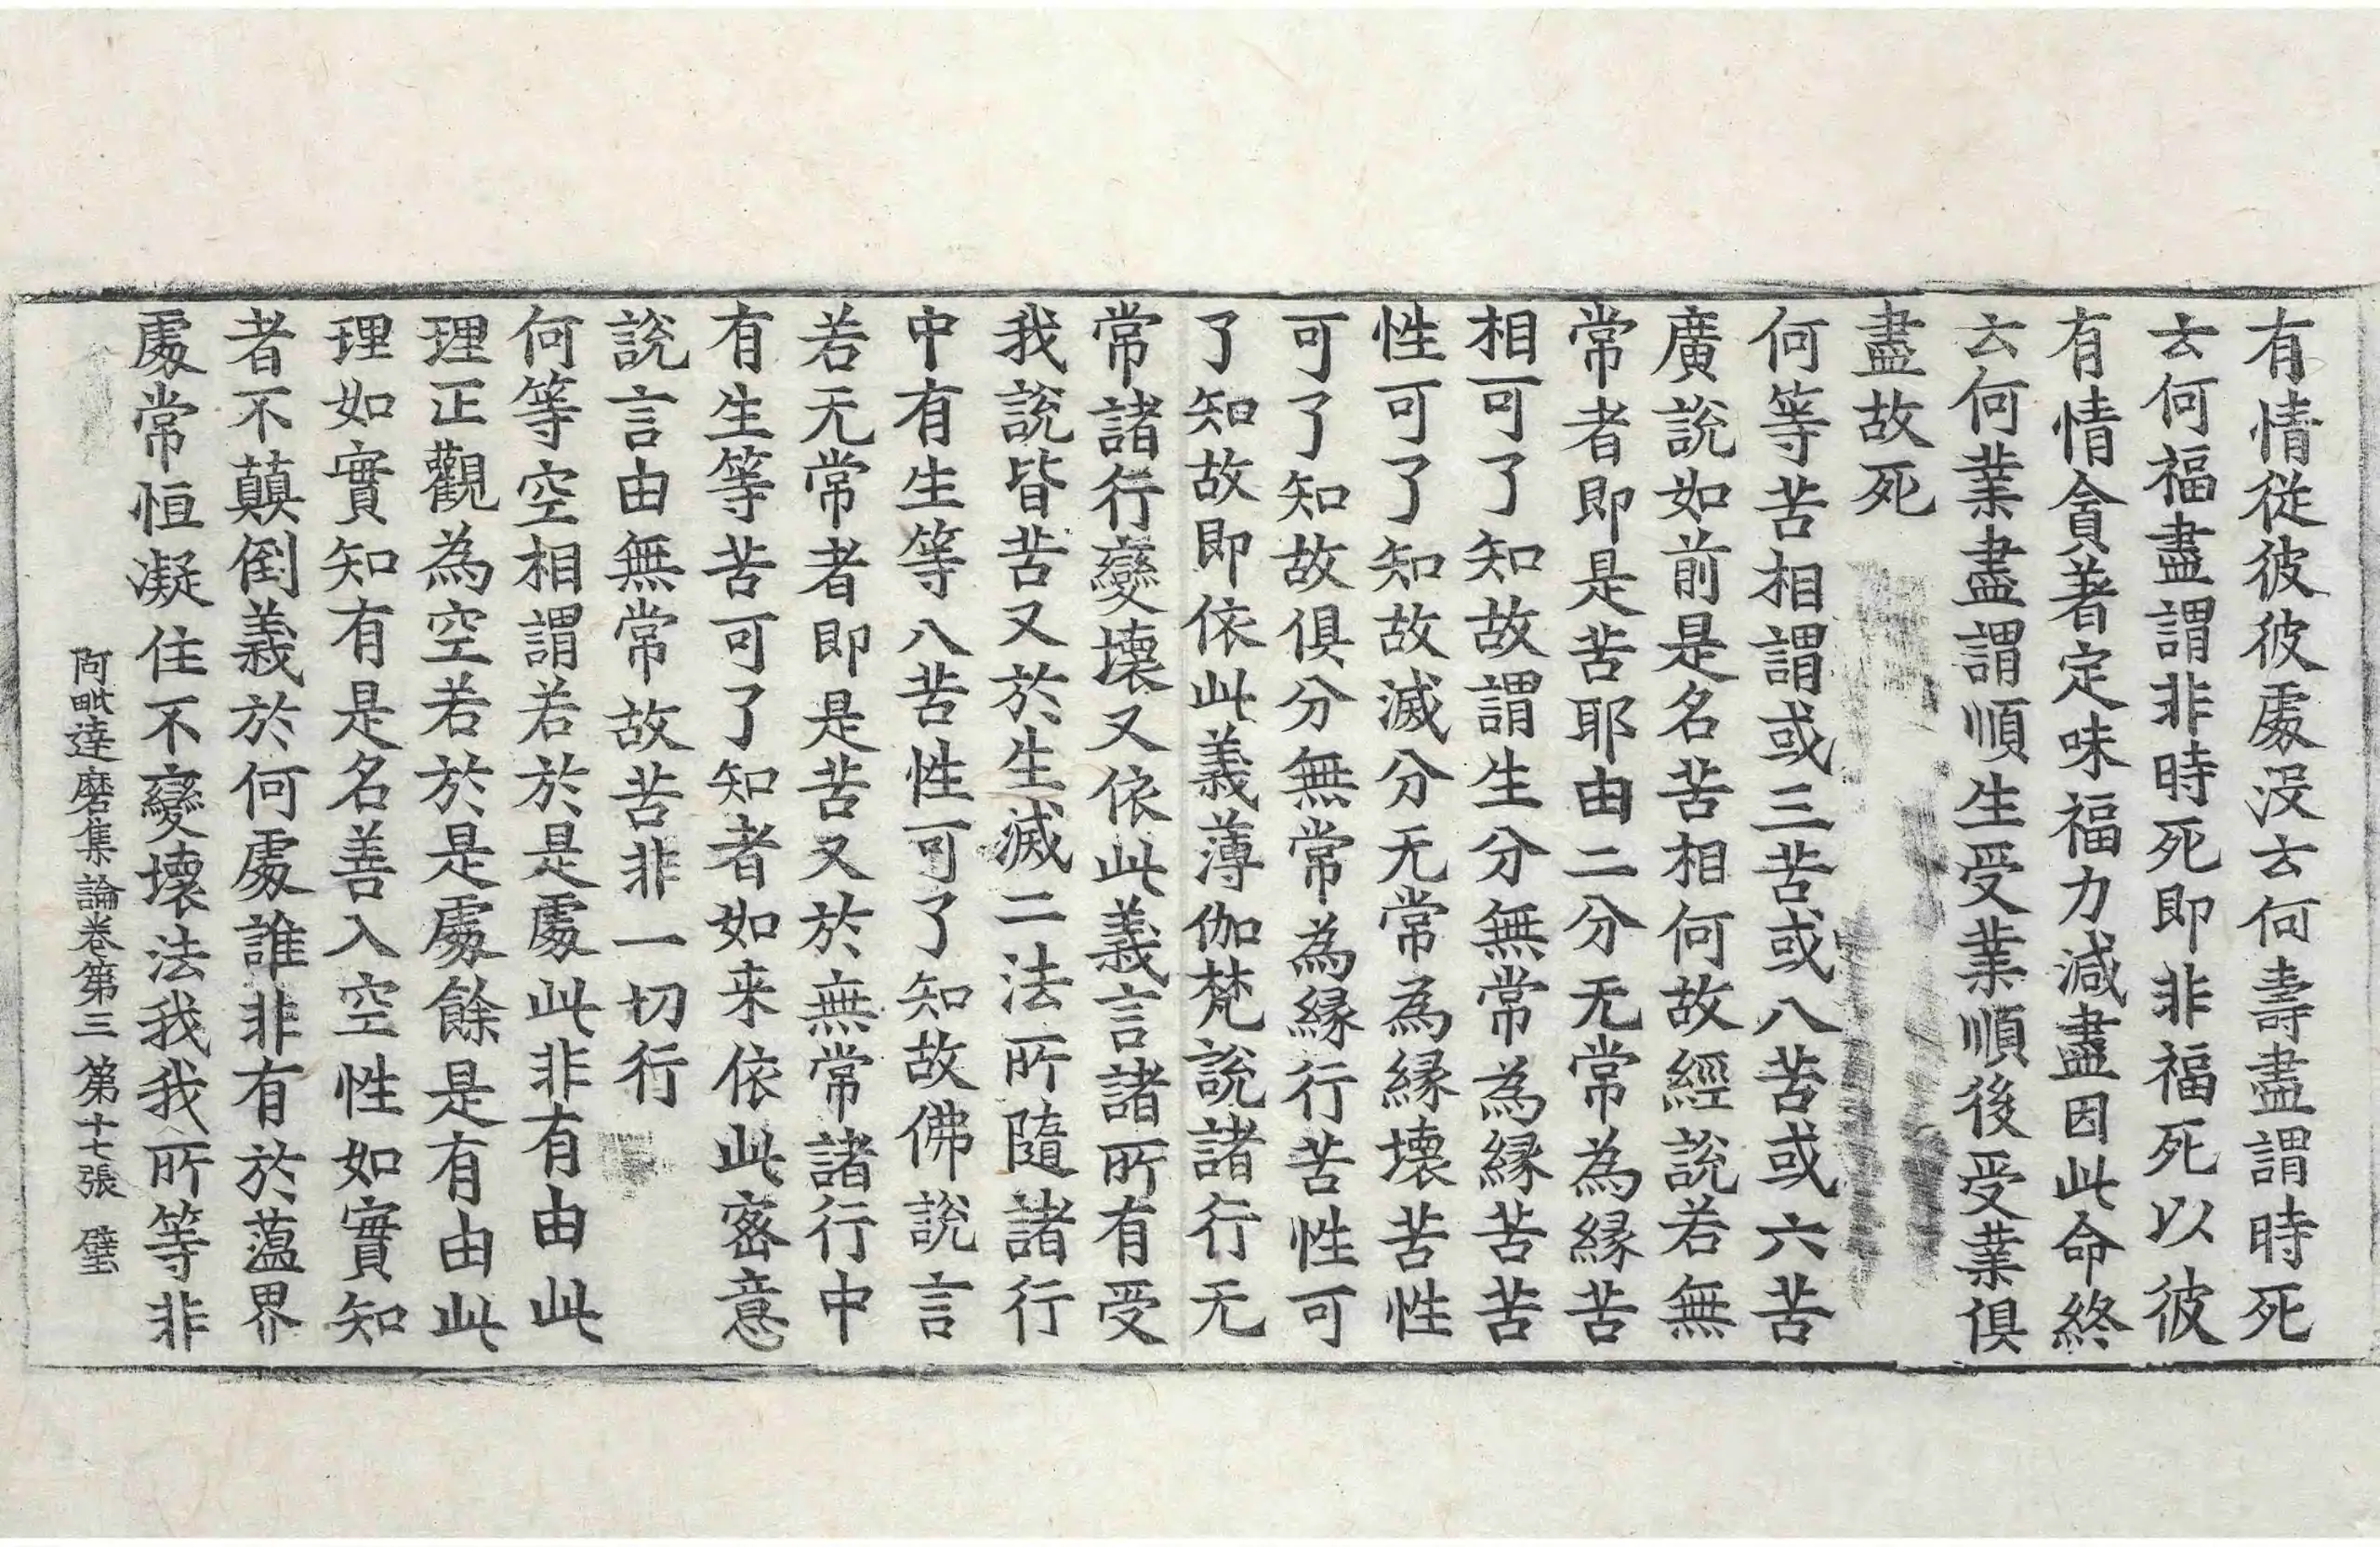 有情從彼彼處没云何壽盡謂時死
云何福盡謂非時死即非福死以彼
有情貪著定味福力減盡因此命終
云何業盡謂順生受業順後受業俱
盡故死
何等苦相謂或三苦或八苦或六苦
廣說如前是名苦相何故經說若無
常者即是苦耶由二分无常為緣苦
相可了知故謂生分無常為緣苦苦
性可了知故滅分无常為緣壞苦性
可了知故俱分無常為緣行苦性可
了知故即依此義薄伽梵說諸行无
常諸行變壞又依此義言諸所有受
我說皆苦又於生滅二法所隨諸行
中有生等八苦性可了知故佛說言
若无常者即是苦又於無常諸行中
有生等苦可了知者如来依此密意
說言由無常故苦非一切行
何等空相謂若於是處此非有由此
理正觀為空若於是處餘是有由此
理如實知有是名善入空性如實知
者不顛倒義於何處誰非有於蘊界
處常恒凝住不變壞法我我所等非
阿毗達磨集論卷第三 第十七張 璧